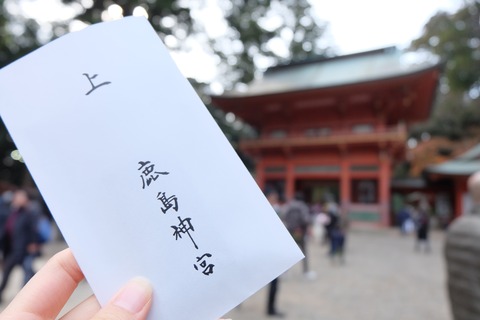 上
鹿島神宮